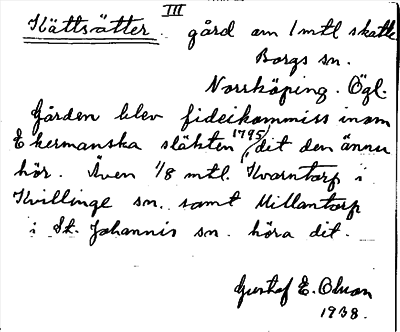 III
Kättsätter. gård om 1 mtl skatte
Borgs sn.
Norrköping. Ögl.
Gården blev fideikommiss inom
Ekermanska släkten 1795, dit den ännu
hör. Även 1/8 mtl. Kvarntorp i
Kvillinge sn. samt Millantorp
i St. Johannis sn. höra dit.
Gustaf E. Olson
1938.